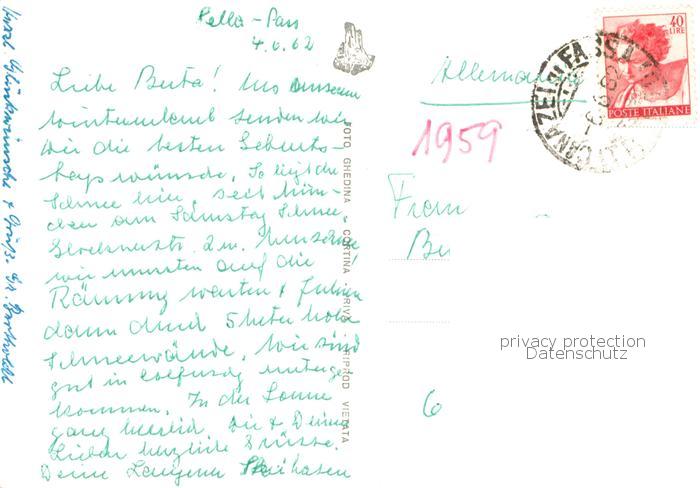 Pella-Pass
4.6.62
Liebe Berta! Aus unserem
Winterurlaub senden wir
Dir die besten Geburts-
tagswünsche. So liegt der
Schnee hier, seit Mün-
chen am Samstag Schnee.
2 m.
wir mussten auf die
Räumung warten & fuhren
dann durch 5 Meter hohe
Schneewände. Wir sind
gut in Colfuschg unterge-
kommen. In der Sonne
ganz herrlich. Dir & Deinen
Lieben herzliche Grüsse.
Deine
Glückwünsche & Grüße Dr.
FOTO GHEDINA - CORTINA
RIPROD VIETATA
Allemagne
1959
40
LIRE
POSTE ITALIANE
Frau
Be
6
privacy protection
Datenschutz